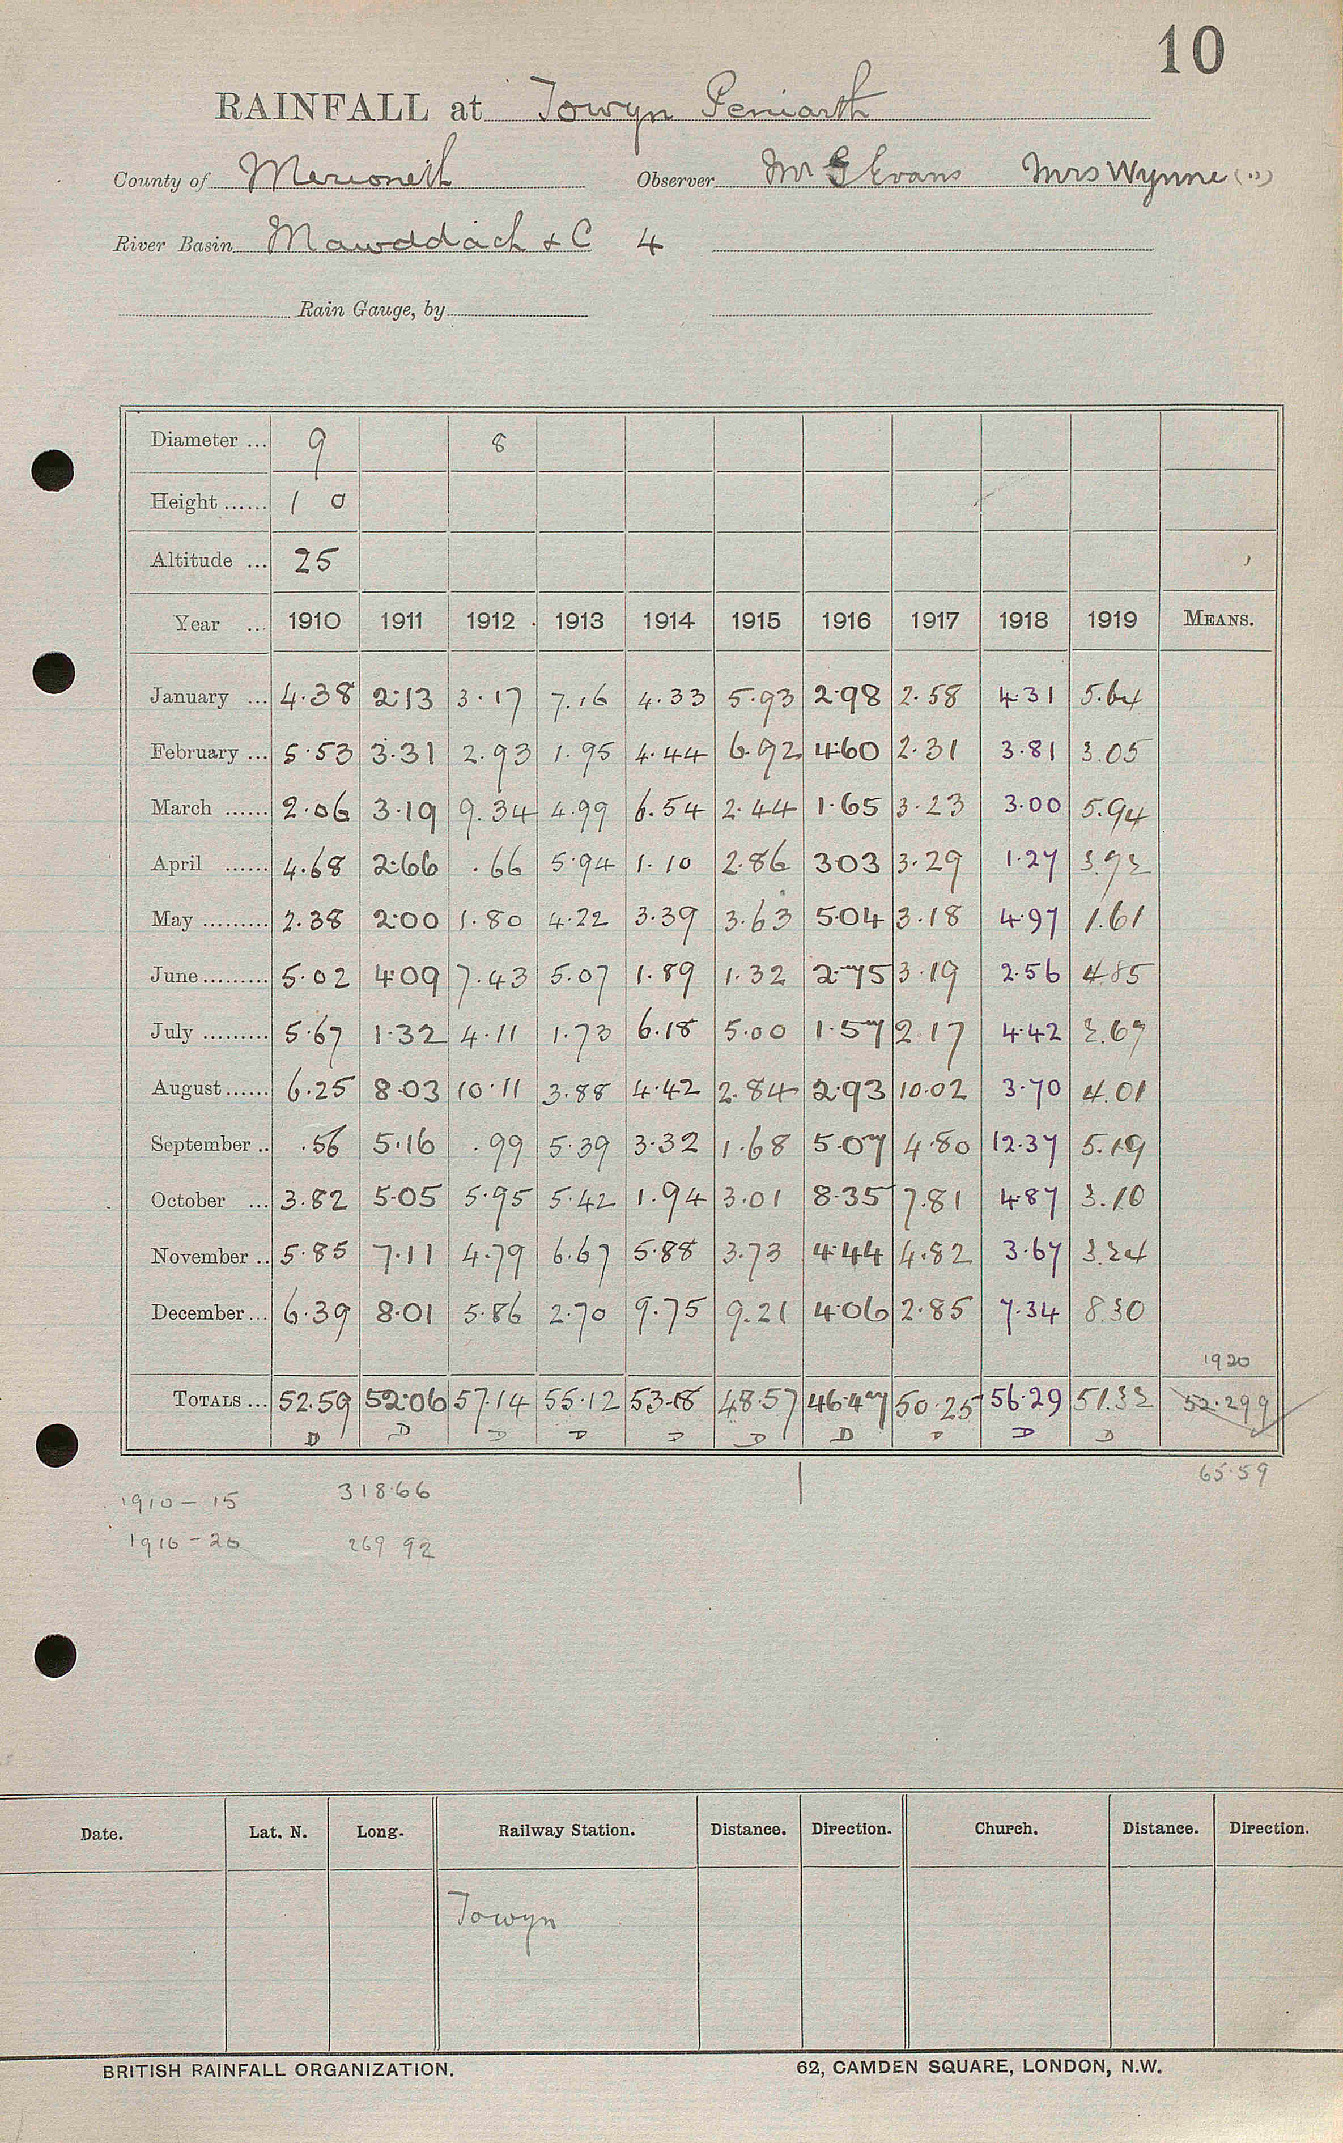 10
RAINFALL at Towyn Peniarth
County of Merioneth Observer Mr G Evans Mrs Wynne (")
River Basin Mawddach & C 4
Rain Gauge, by
Diameter ... 9 8
Height ...... 1 0
Altitude ... 25
Year ... 1910 1911 1912 1913 1914 1915 1916 1917 1918 1919 MEANS.
January ... 4.38 2.13 3.17 7.16 4.33 5.93 2.98 2.58 4.31 5.64
February ... 5.53 3.31 2.93 1.95 4.44 6.92 4.60 2.31 3.81 3.05
March ...... 2.06 3.19 9.34 4.99 6.54 2.44 1.65 3.23 3.00 5.94
April ...... 4.68 2.66 .66 5.94 1.10 2.86 3.03 3.29 1.27 3.92
May ......... 2.38 2.00 1.80 4.22 3.39 3.63 5.04 3.18 4.97 1.61
June ......... 5.02 4.09 7.43 5.07 1.89 1.32 2.75 3.19 2.56 4.85
July ......... 5.67 1.32 4.11 1.73 6.18 5.00 1.57 2.17 4.42 2.67
August ...... 6.25 8.03 10.11 3.88 4.42 2.84 2.93 10.02 3.70 4.01
September .. .56 5.16 .99 5.39 3.32 1.68 5.07 4.80 12.37 5.19
October ... 3.82 5.05 5.95 5.42 1.94 3.01 8.35 7.81 4.87 3.10
November .. 5.85 7.11 4.79 6.67 5.88 3.73 4.44 4.82 3.67 3.24
December ... 6.39 8.01 5.86 2.70 9.75 9.21 4.06 2.85 7.34 8.30
1920
TOTALS ... 52.59 52.06 57.14 55.12 53.18 48.57 46.47 50.25 56.29 51.32 52.299
D D D D D D D D D D
65.59
1910 - 15 318.66
1916 - 20 269 92
Date. Lat. N. Long. Railway Station. Distance. Direction. Church. Distance. Direction.
Towyn
BRITISH RAINFALL ORGANIZATION. 62, CAMDEN SQUARE, LONDON, N.W.